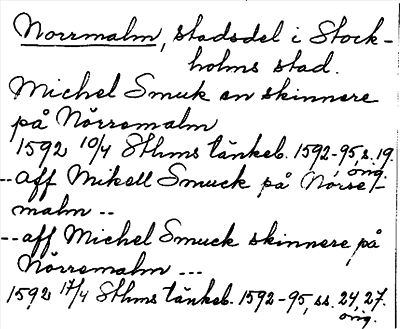 Norrmalm, stadsdel i Stock-
holms stad.
Michel Smuk en skinnere
på Nörremalm
1592 10/4 Sthms tänkeb. 1592-95, s. 19.
orig.
-- aff Mikell Smuck på Nörre-
malm --
-- aff Michel Smuck skinnere på
Nörremalm ---
1592 17/4 Sthms tänkeb. 1592-95, ss. 24, 27.
orig.